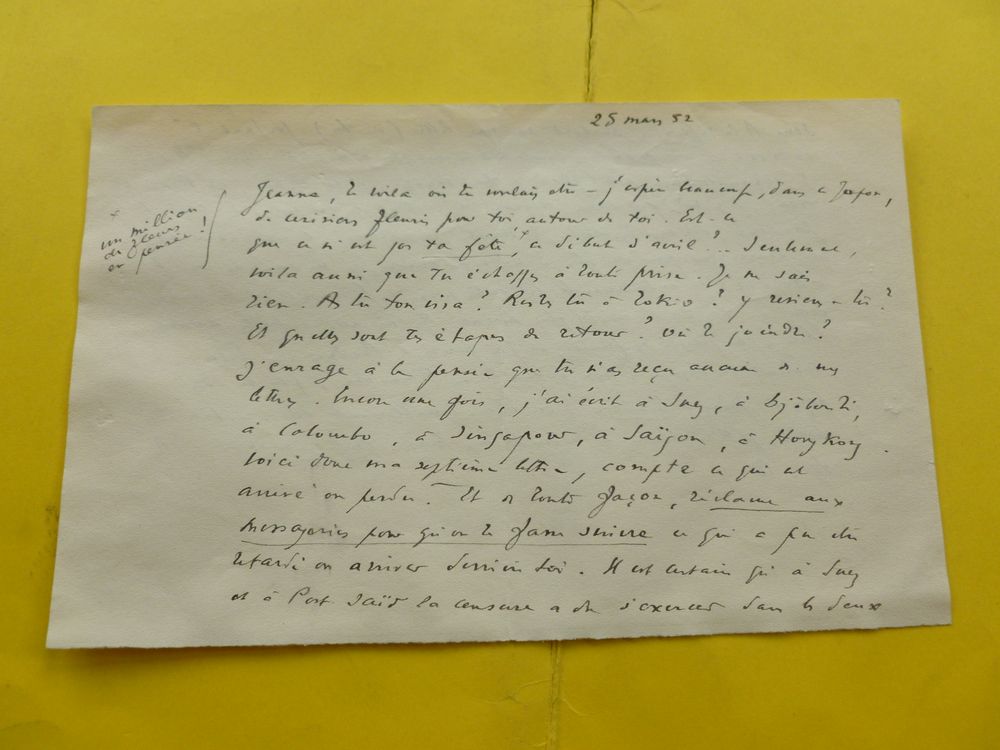 25 mars 52
Jeanne, te voilà où tu voulais être – j'espère beaucoup, dans ce Japon,
de cerisiers fleuris pour toi, autour de toi. Est-ce
que ce n'est pas ta fête,× ce début d'avril ?.. Seulement,
voilà aussi que tu échappes à toute prise. Je ne sais
rien. As-tu ton visa ? Restes-tu à Tokio ? y reviens-tu ?
Et quelles sont tes étapes de retour ? où te joindre ?
J'enrage à la pensée que tu n'as reçu aucune de mes
lettres. Encore une fois, j'ai écrit à Suez, à Djibouti,
à Colombo, à Singapour, à Saïgon, à Hong Kong.
Voici donc ma septième lettre, compte ce qui est
arrivé ou perdu. Et de toute façon, réclame aux
messageries pour qu'on te fasse suivre ce qui a pu être
retardé ou arriver derrière toi. Il est certain qu'à Suez
et à Port Saïd la censure a dû s'exercer dans les deux
× un million
de fleurs
en pensée !